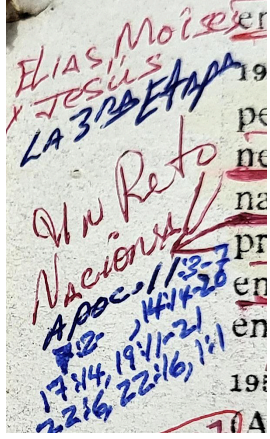 ELIAS, Moises
y Jesús
LA 3RA ETAPA
Un Reto
Nacional
APOC. 11:3-7
7:2- , 14:14-20
17:14, 19:11-21
22:6, 22:16, 1:1
er
19
pe
ne
na
pr
en
en
195
(A